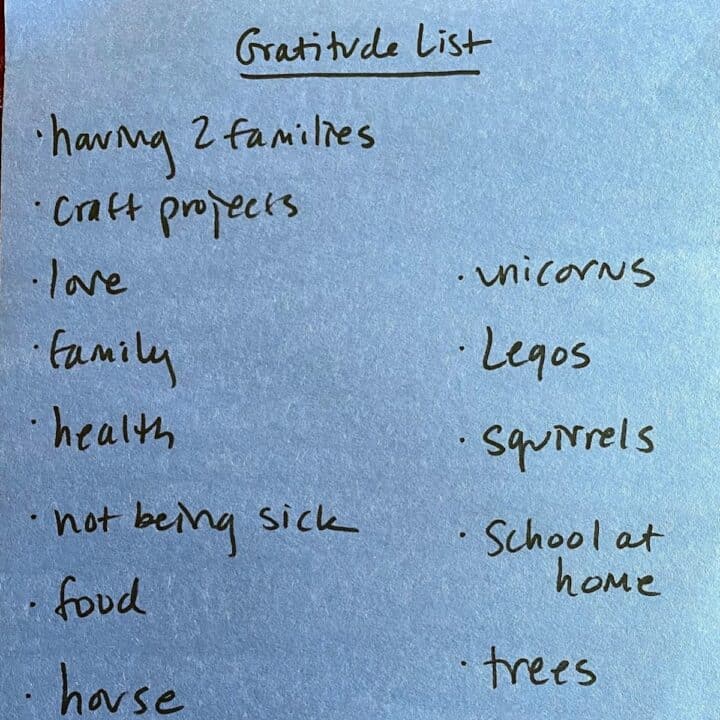 Gratitude List
· having 2 families
· craft projects
· love
· family
· health
· not being sick
· food
· house
· unicorns
· Legos
· squirrels
· School at
home
· trees